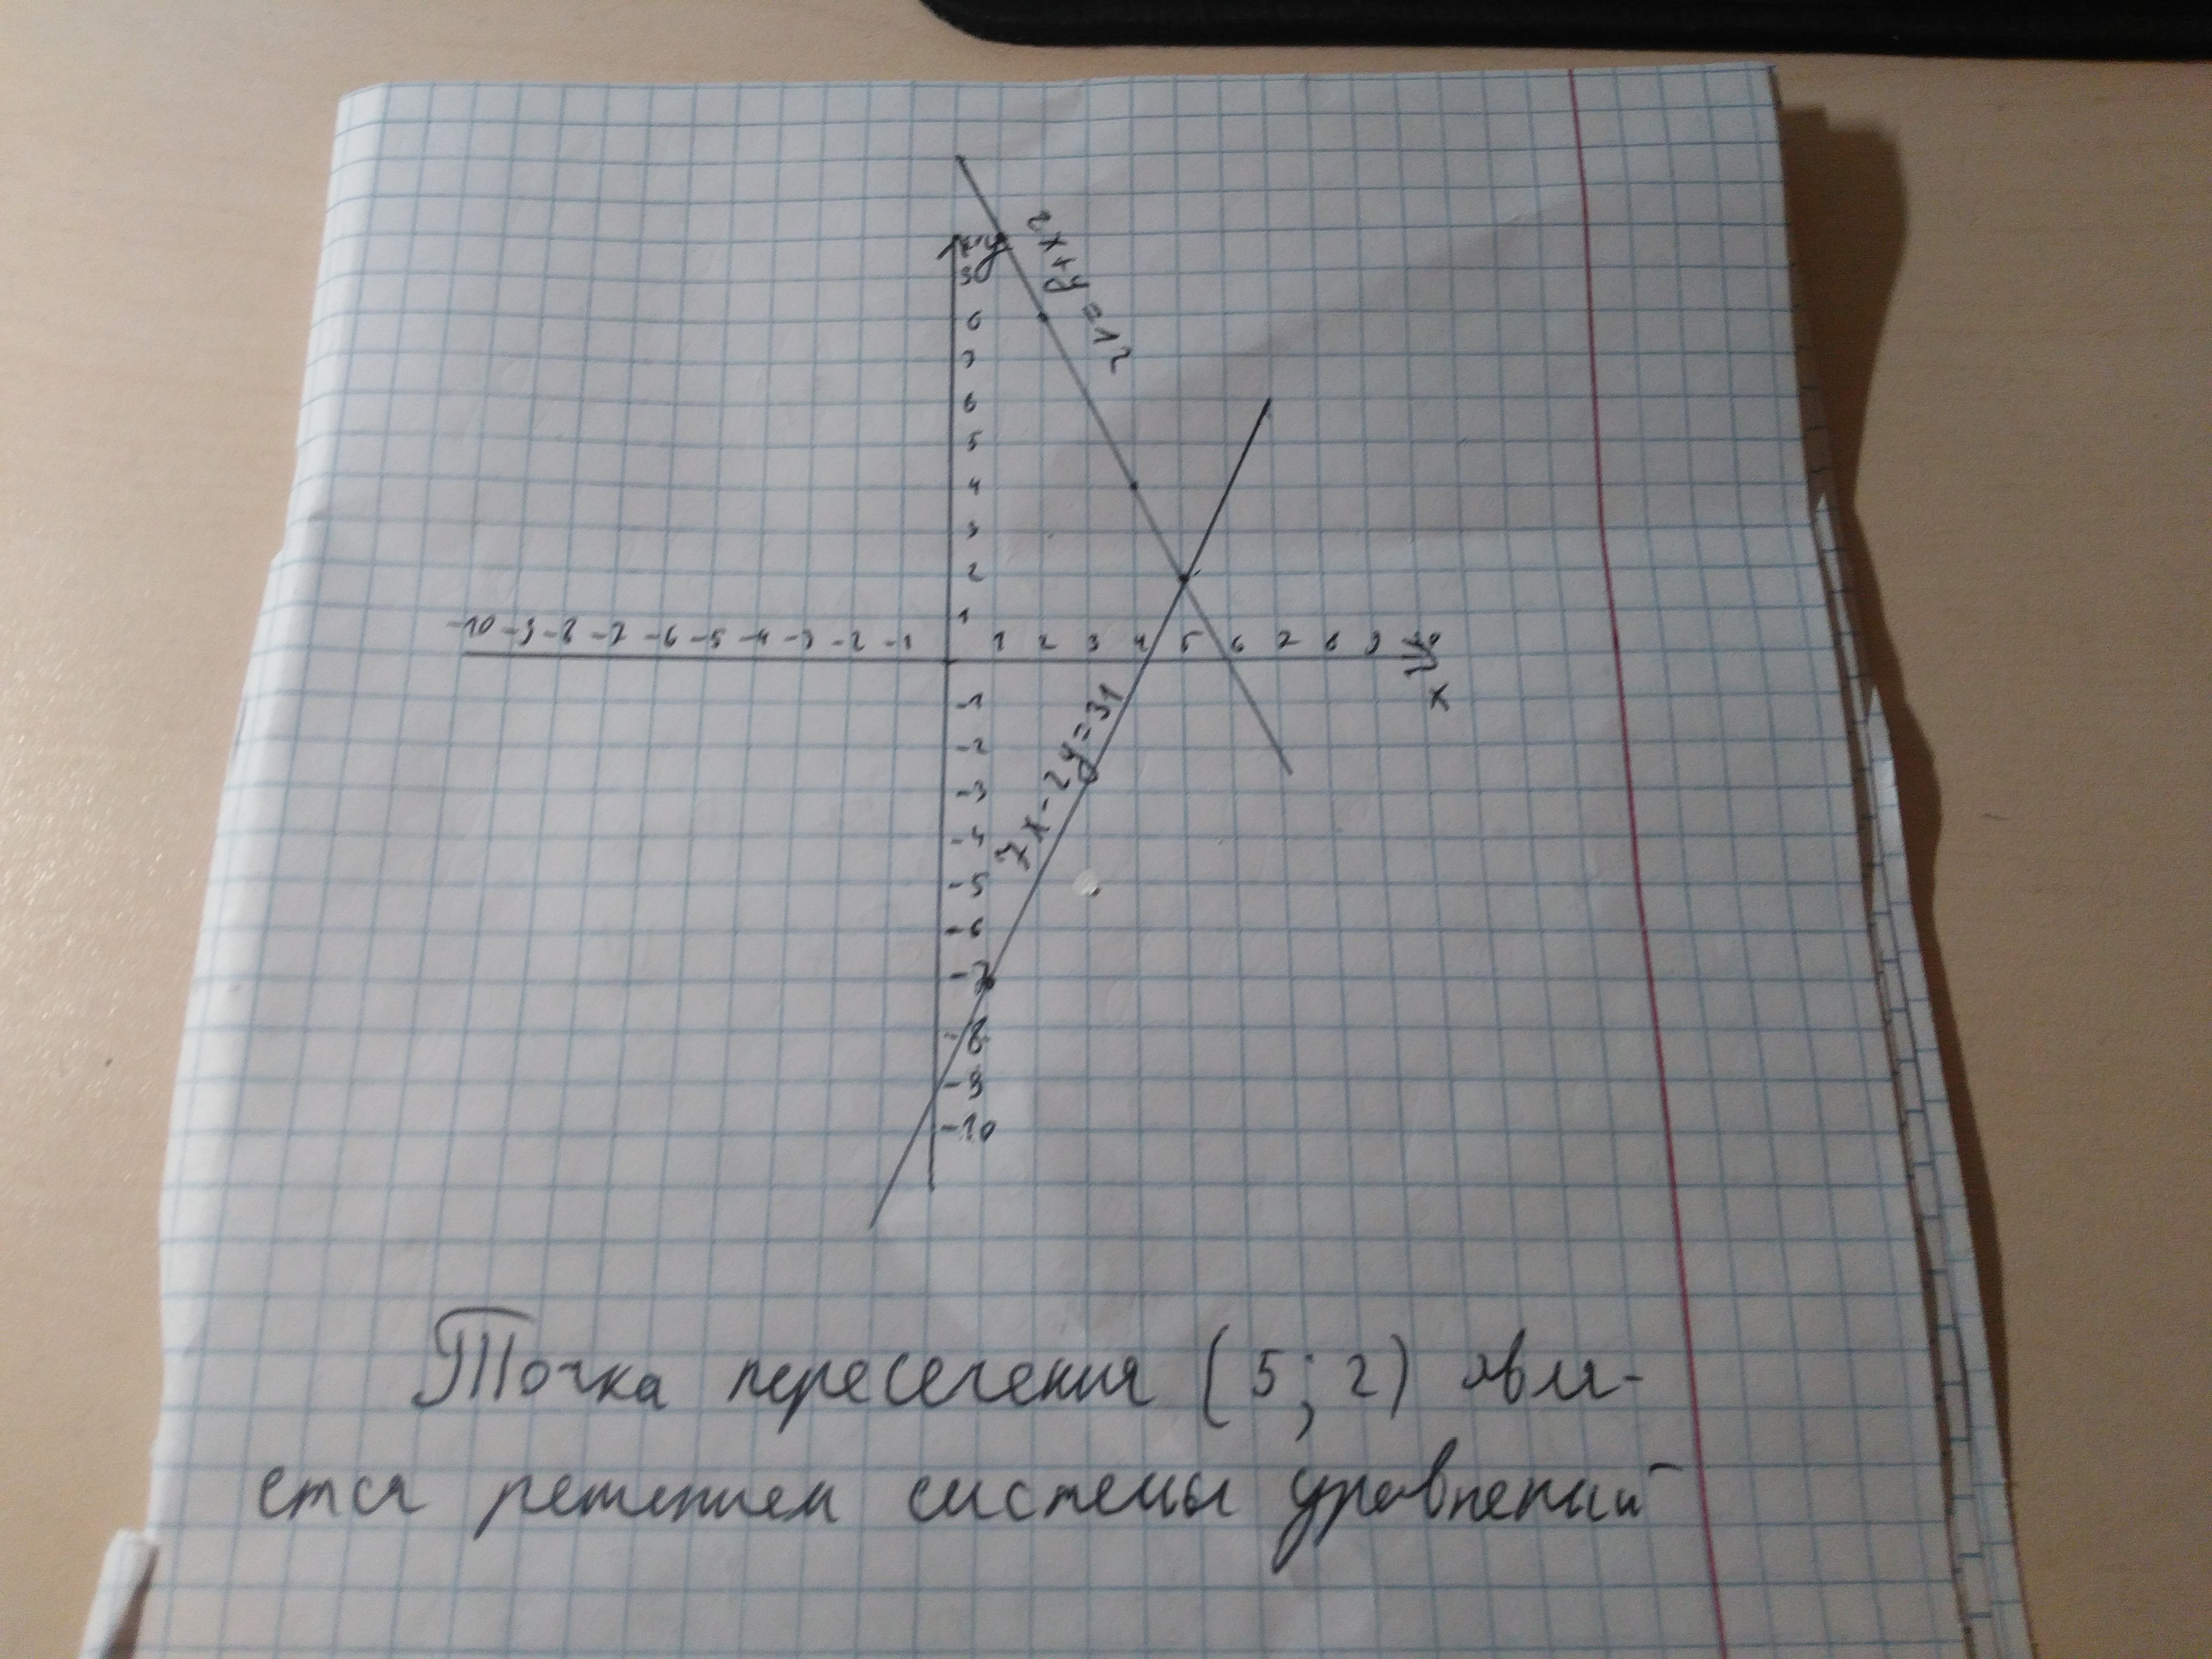 y
10
9
8
7
6
5
4
3
2
1
2x+y=12
-10 -9 -8 -7 -6 -5 -4 -3 -2 -1 1 2 3 4 5 6 7 8 9 10
x
-1
-2
-3
-4
-5
-6
-7
-8
-9
-10
7x-2y=31
Точка пересечения (5; 2) явля-
ется решением системы уравнений